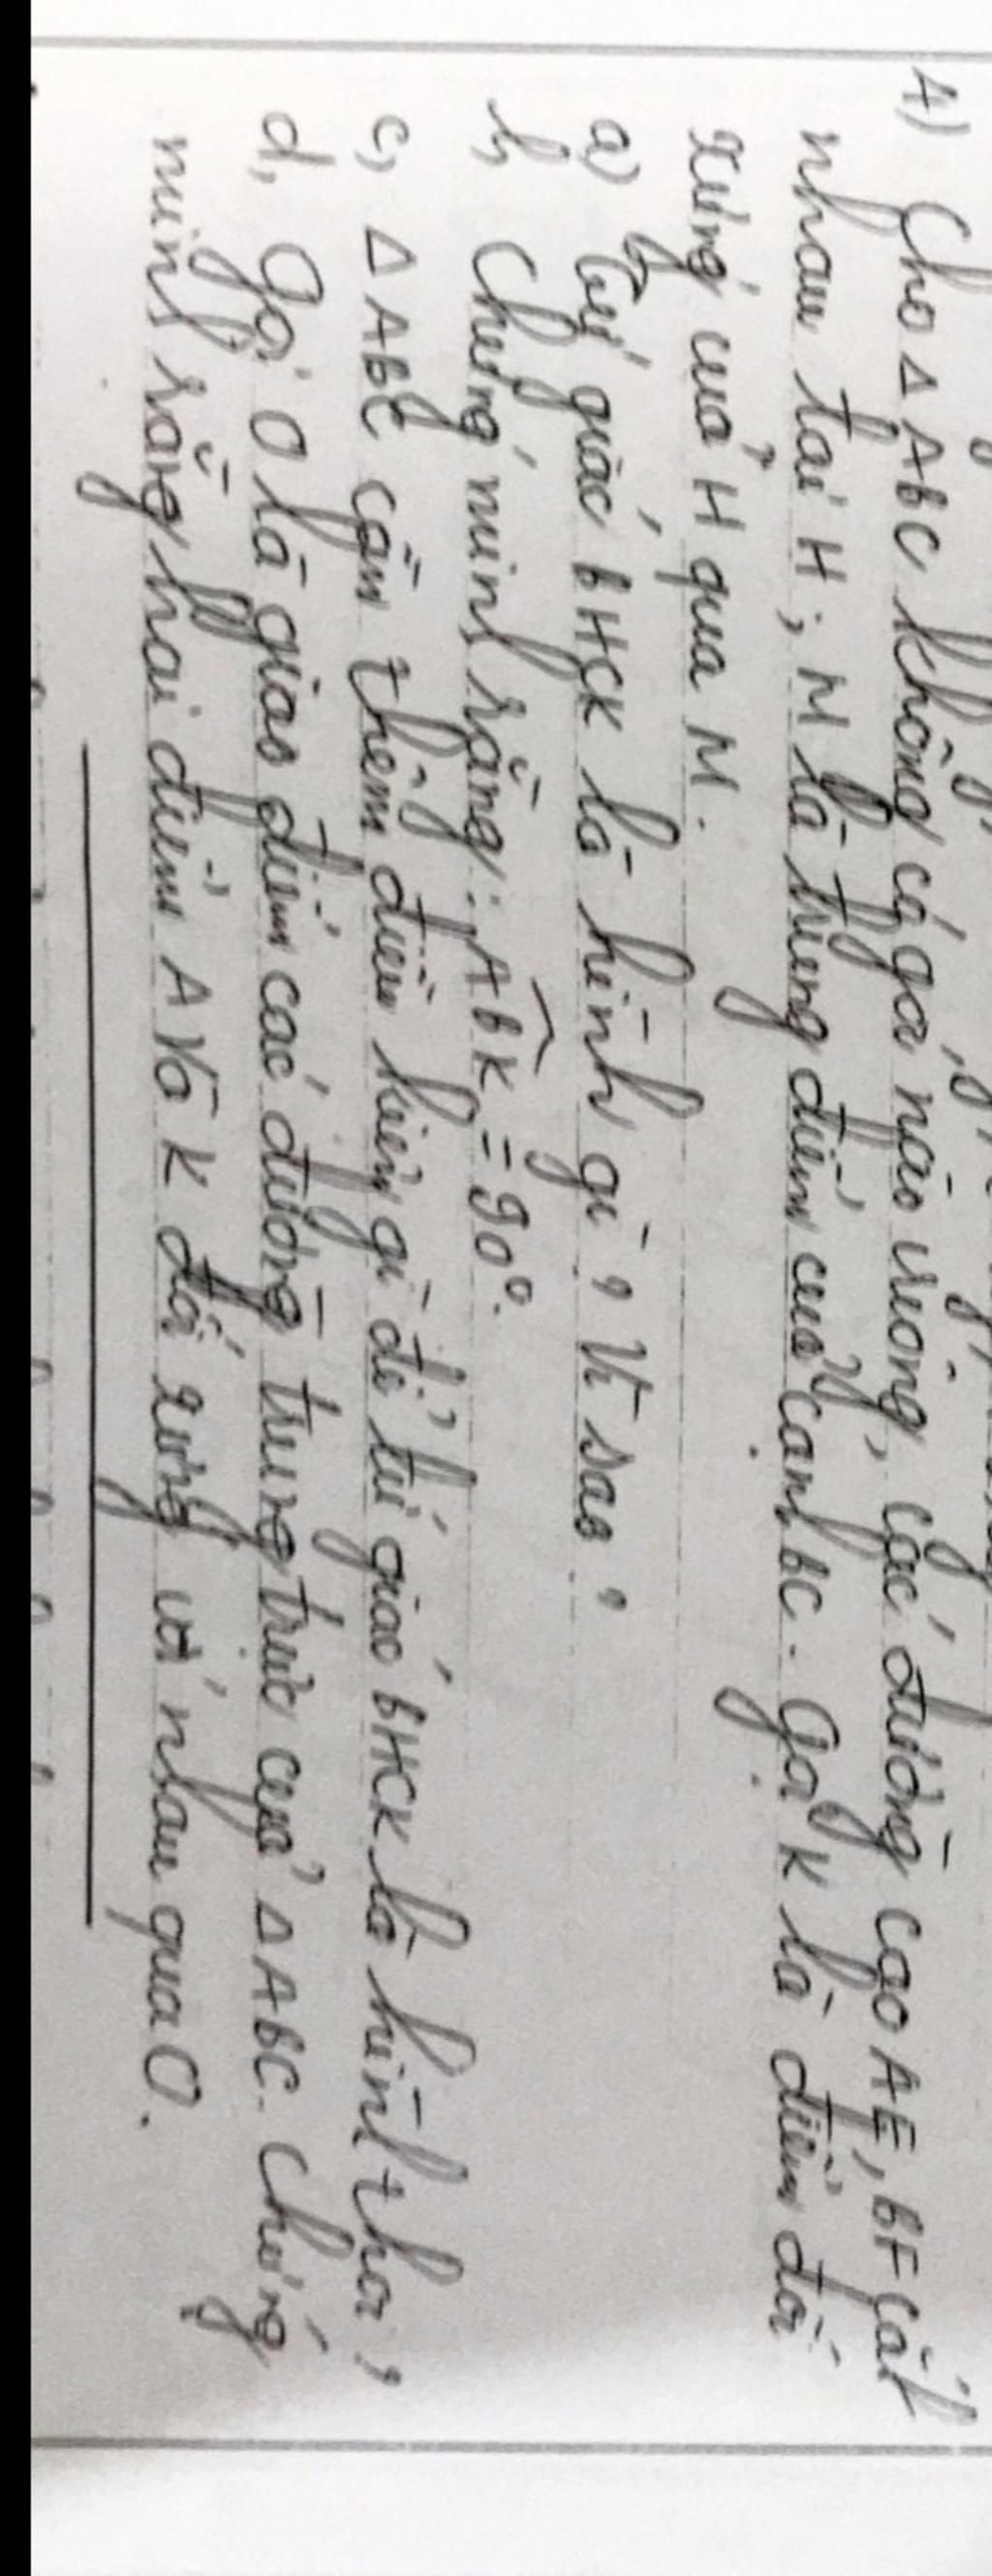 4) Cho Δ ABC không có góc nào vuông, các đường cao AE, BF cắt
nhau tại H; M là trung điểm của cạnh BC. Gọi K là điểm đối
xứng của H qua M.
a) Tứ giác BHCK là hình gì? Vì sao?
b, Chứng minh rằng: ABK = 90°.
c, Δ ABC cần thêm điều kiện gì để tứ giác BHCK là hình thoi?
d, Gọi O là giao điểm các đường trung trực của Δ ABC. Chứng
minh rằng hai điểm A và K đối xứng với nhau qua O.